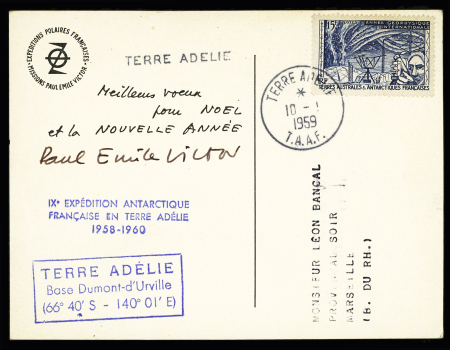 EXPÉDITIONS POLAIRES FRANÇAISES
MISSIONS PAUL EMILE VICTOR
TERRE ADELIE
Meilleurs voeux
pour NOEL
et la NOUVELLE ANNÉE
Paul Emile Victor
IXe EXPÉDITION ANTARCTIQUE
FRANÇAISE EN TERRE ADÉLIE
1958-1960
TERRE ADÉLIE
Base Dumont-d'Urville
(66° 40' S - 140° 01' E)
15F ANNÉE GÉOPHYSIQUE
INTERNATIONALE
TERRES AUSTRALES & ANTARCTIQUES FRANÇAISES
TERRE ADELIE
*
10 -1
1959
T.A.A.F.
MONSIEUR LÉON BANCAL
PROVENCAL SOIR
MARSEILLE
(B. DU RH.)